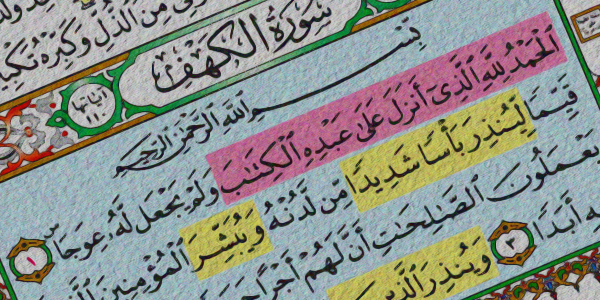 مِنَ ٱلذُّلِّ وَكَبِّرْهُ
سُورَةُ الكَهْفِ
آيَاتُهَا ١١٠
بِسْمِ اللَّهِ الرَّحْمَٰنِ الرَّحِيمِ
ٱلْحَمْدُ لِلَّهِ ٱلَّذِىٓ أَنزَلَ عَلَىٰ عَبْدِهِ ٱلْكِتَٰبَ وَلَمْ يَجْعَل لَّهُۥ عِوَجَا ١
قَيِّمًا لِّيُنذِرَ بَأْسًا شَدِيدًا مِّن لَّدُنْهُ وَيُبَشِّرَ ٱلْمُؤْمِنِينَ
يَعْمَلُونَ ٱلصَّٰلِحَٰتِ أَنَّ لَهُمْ أَجْرًا
أَبَدًا ٣ وَيُنذِرَ ٱلَّذِينَ